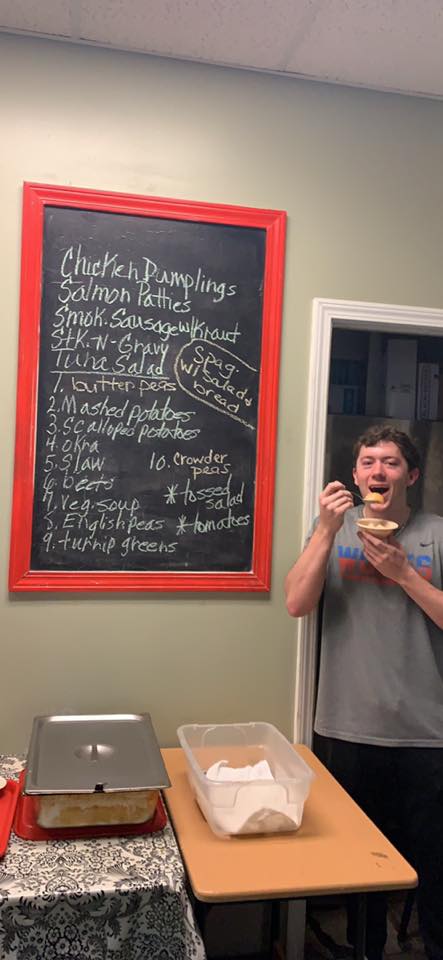 Chicken Dumplings
Salmon Patties
Smok. Sausage w/Kraut
Stk-N-Gravy
Tuna Salad
Spag.
w/ salad &
bread
1. butter peas
2. Mashed potatoes
3. Scalloped potatoes
4. okra
5. Slaw
6. beets
7. Veg. soup
8. English peas
9. turnip greens
10. Crowder
peas
* tossed
salad
* tomatoes